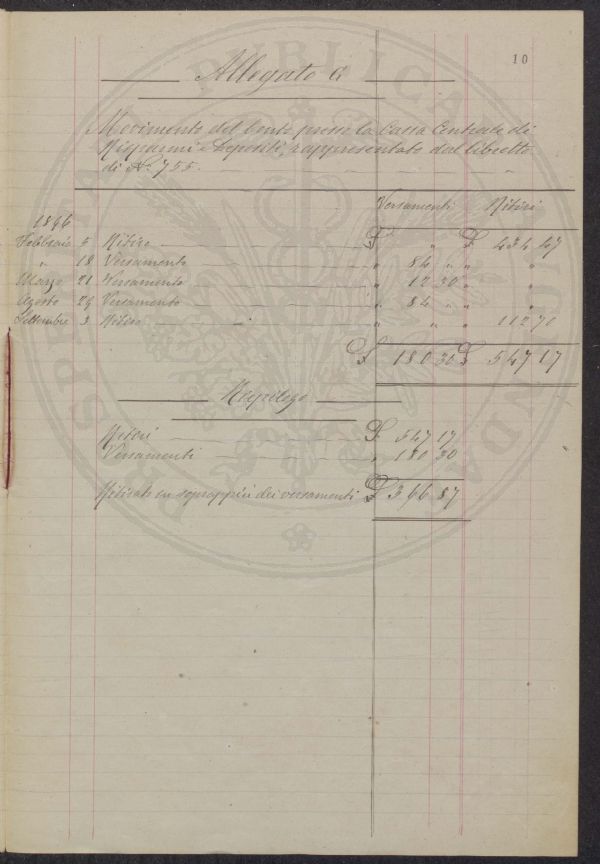 10
Allegato A
Movimento del Conto presso la Cassa Centrale di
Risparmi e Depositi, rappresentato dal libretto
di N.º 755.
Versamenti Ritiri
1896
Febbraio 5 Ritiro £ " £ 434 47
" 18 Versamento " 84 " " "
Marzo 21 Versamento " 12 30 " "
Agosto 29 Versamento " 84 " " "
Settembre 3 Ritiro " " " 112 70
£ 180 30 £ 547 17
Riepilogo
Ritiri £ 547 17
Versamenti " 180 30
Ritirato in soprappiù dei versamenti £ 366 87
PUBLICA